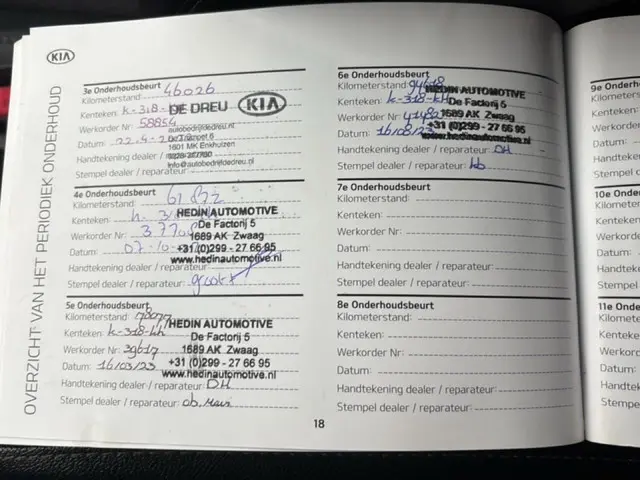 KIA
OVERZICHT VAN HET PERIODIEK ONDERHOUD
3e Onderhoudsbeurt
Kilometerstand: 46026
Kenteken: k-318-
DE DREU KIA
Werkorder Nr: 58854
autobedrijfdedreu.nl
Datum: 22-4-2
De Trompet 6
1601 MK Enkhuizen
Handtekening dealer / reparateur:
info@autobedrijfdedreu.nl
Stempel dealer / reparateur:
4e Onderhoudsbeurt
Kilometerstand:
Kenteken:
HEDIN AUTOMOTIVE
De Factorij 5
Werkorder Nr:
1689 AK Zwaag
Datum: 07-10-
+31 (0)299 - 27 66 95
www.hedinautomotive.nl
Handtekening dealer / reparateur:
Stempel dealer / reparateur:
5e Onderhoudsbeurt
Kilometerstand:
Kenteken: k-318-hh
HEDIN AUTOMOTIVE
De Factorij 5
Werkorder Nr: 39617
1689 AK Zwaag
Datum: 16/03/23
+31 (0)299 - 27 66 95
www.hedinautomotive.nl
Handtekening dealer / reparateur: DH
Stempel dealer / reparateur:
6e Onderhoudsbeurt
Kilometerstand: 94618
HEDIN AUTOMOTIVE
Kenteken: k-318-hh
De Factorij 5
Werkorder Nr:
1689 AK Zwaag
Datum: 16/08/23
+31 (0)299 - 27 66 95
www.hedinautomotive.nl
Handtekening dealer / reparateur: DH
Stempel dealer / reparateur: hb
7e Onderhoudsbeurt
Kilometerstand:
Kenteken:
Werkorder Nr:
Datum:
Handtekening dealer / reparateur:
Stempel dealer / reparateur:
8e Onderhoudsbeurt
Kilometerstand:
Kenteken:
Werkorder Nr:
Datum:
Handtekening dealer / reparateur:
Stempel dealer / reparateur:
18
9e Onder
Kilomete
Kenteke
Werkord
Datum:
Handte
Stempe
10e On
Kilome
Kente
Werko
Datum
Hand
Stem
11e O
Kilom
Kent
Wer
Dat
Har
Ste